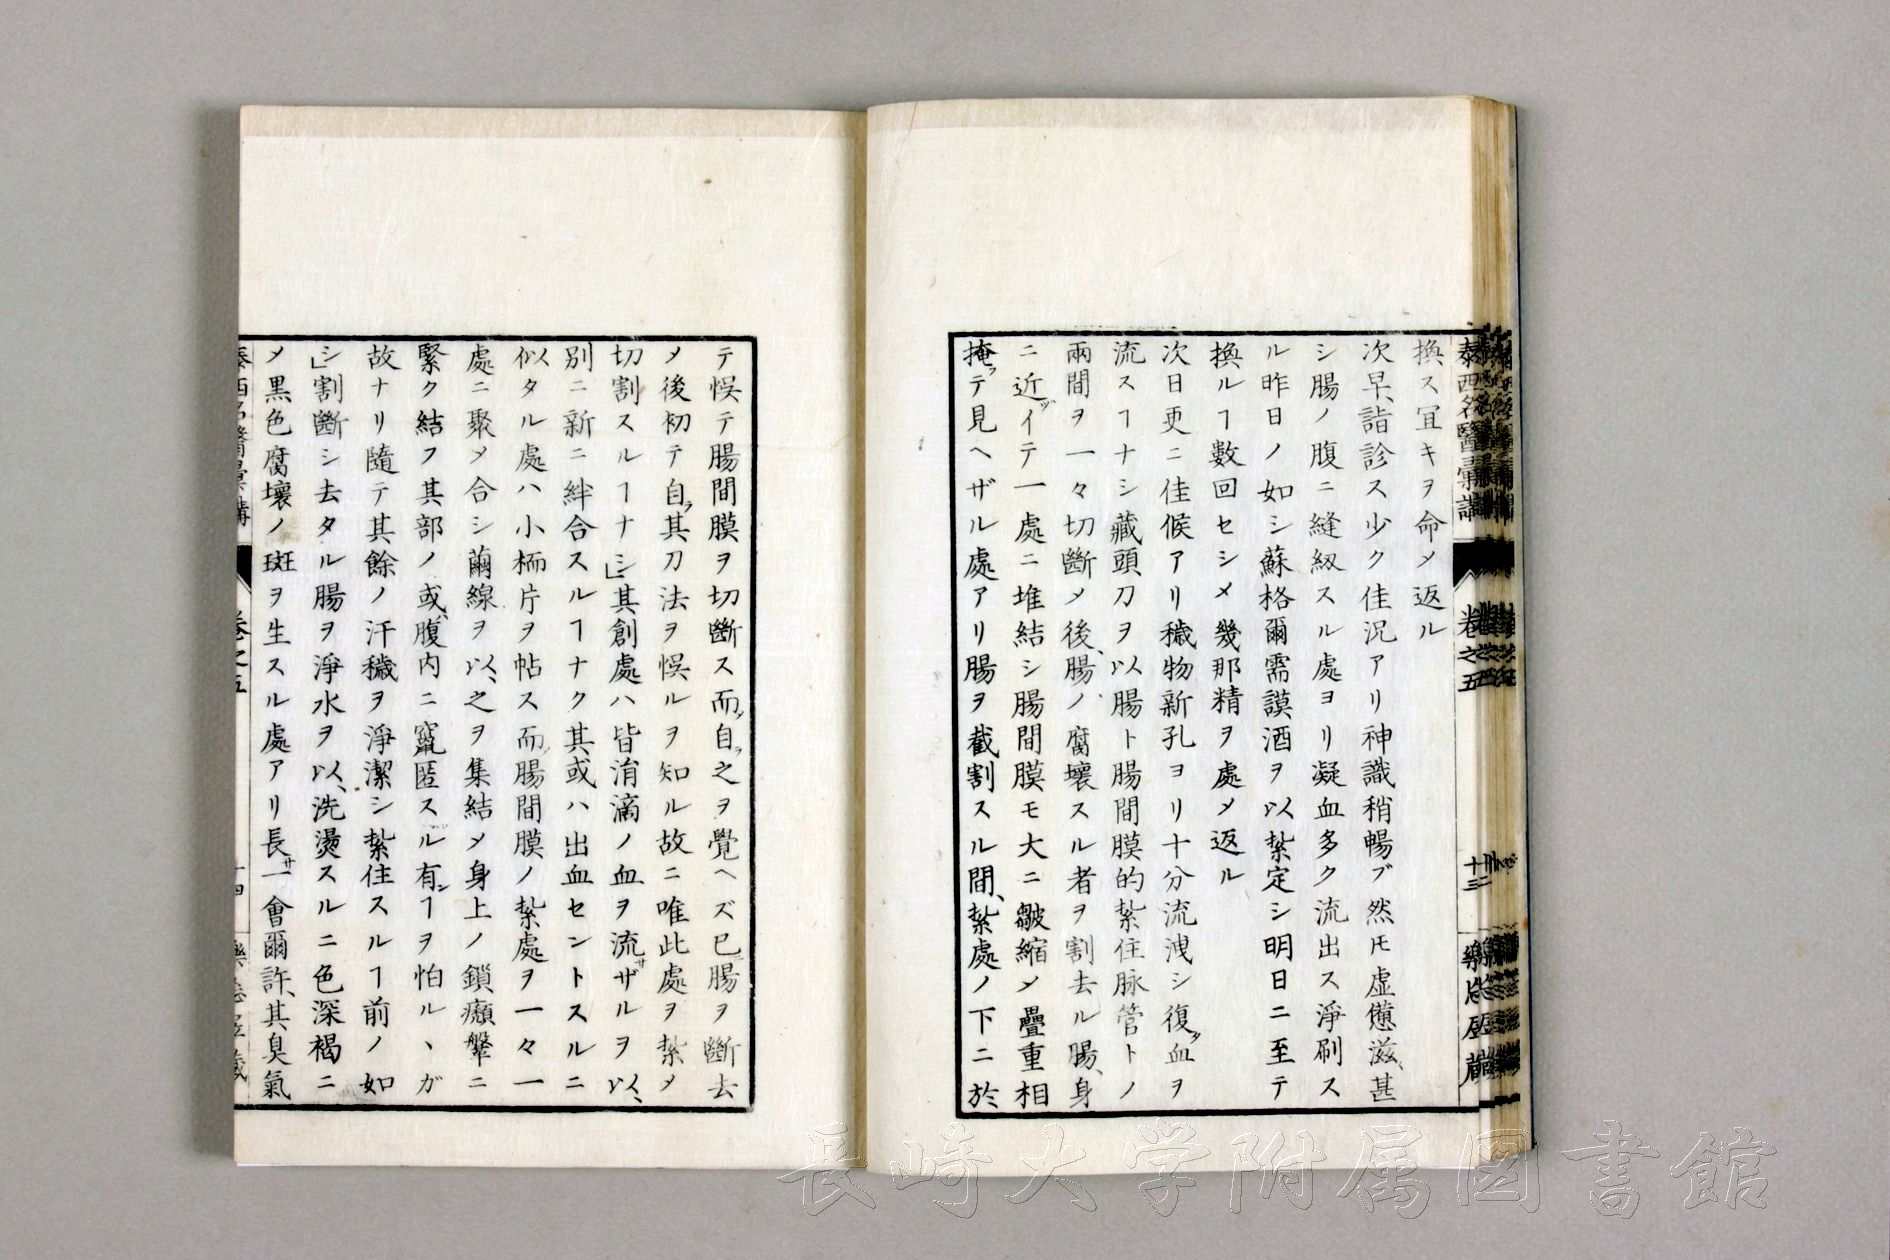 換ス冝キヲ命メ返ル
次早、詣診ス少ク佳况アリ神識稍暢ブ然𪜈虚憊滋、甚
シ腸ノ腹ニ縫紉スル處ヨリ凝血多ク流出ス淨刷ス
ル昨日ノ如シ蘇格爾需謨酒ヲ以紮定シ明日ニ至テ
換ルヿ數回セシメ幾那精ヲ處メ返ル
次日更ニ佳候アリ穢物新孔ヨリ十分流洩シ復タ血ヲ
流スヿナシ藏頭刀ヲ以腸ト腸間膜的紮住脉管トノ
兩間ヲ一々切斷メ後、腸ノ腐壞スル者ヲ割去ル腸、身
ニ近ヅイテ一處ニ堆結シ腸間膜モ大ニ皺縮メ疊重相
掩フテ見ヘザル處アリ腸ヲ截割スル間、紮處ノ下ニ於
泰西名醫彙講 卷之五 十三
テ悞テ腸間膜ヲ切斷ス而メ自ラ之ヲ覺ヘズ已ニ腸ヲ斷去
メ後初テ自ラ其刀法ヲ悞ルヲ知ル故ニ唯此處ヲ紮メ
切割スルヿナシ」其創處ハ皆涓滴ノ血ヲ流サザルヲ以、
別ニ新ニ絆合スルヿナク其或ハ出血セントスルニ
似タル處ハ小栭片ヲ帖ス而メ腸間膜ノ紮處ヲ一々一
處ニ聚メ合シ繭線ヲ以、之ヲ集結メ身上ノ鎖癩鞶ニ
緊ク結フ其部ノ或、腹内ニ竄匿スル有ンヿヲ怕ル丶ガ
故ナリ隨テ其餘ノ汗穢ヲ淨潔シ紮住スルヿ前ノ如
シ」割斷シ去タル腸ヲ淨水ヲ以、洗盪スルニ色深褐ニ
メ黒色腐壞ノ斑ヲ生スル處アリ長サ一會爾許、其臭氣
泰西名醫彙講 卷之五 十四
長崎大学附属図書館